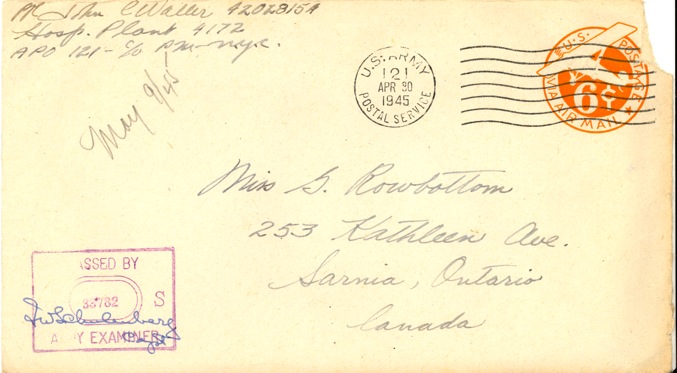 Pvt John C Waller 42028154
Hosp. Plant 4172
APO 121 - c/o P.M. - N.Y.C.
May 9/45
U.S. ARMY
121
APR 30
1945
POSTAL SERVICE
U.S. POSTAGE
6¢
VIA AIR MAIL
Miss G. Rowbottom
253 Kathleen Ave.
Sarnia, Ontario
Canada
ASSED BY
S
A Y EXAMINER